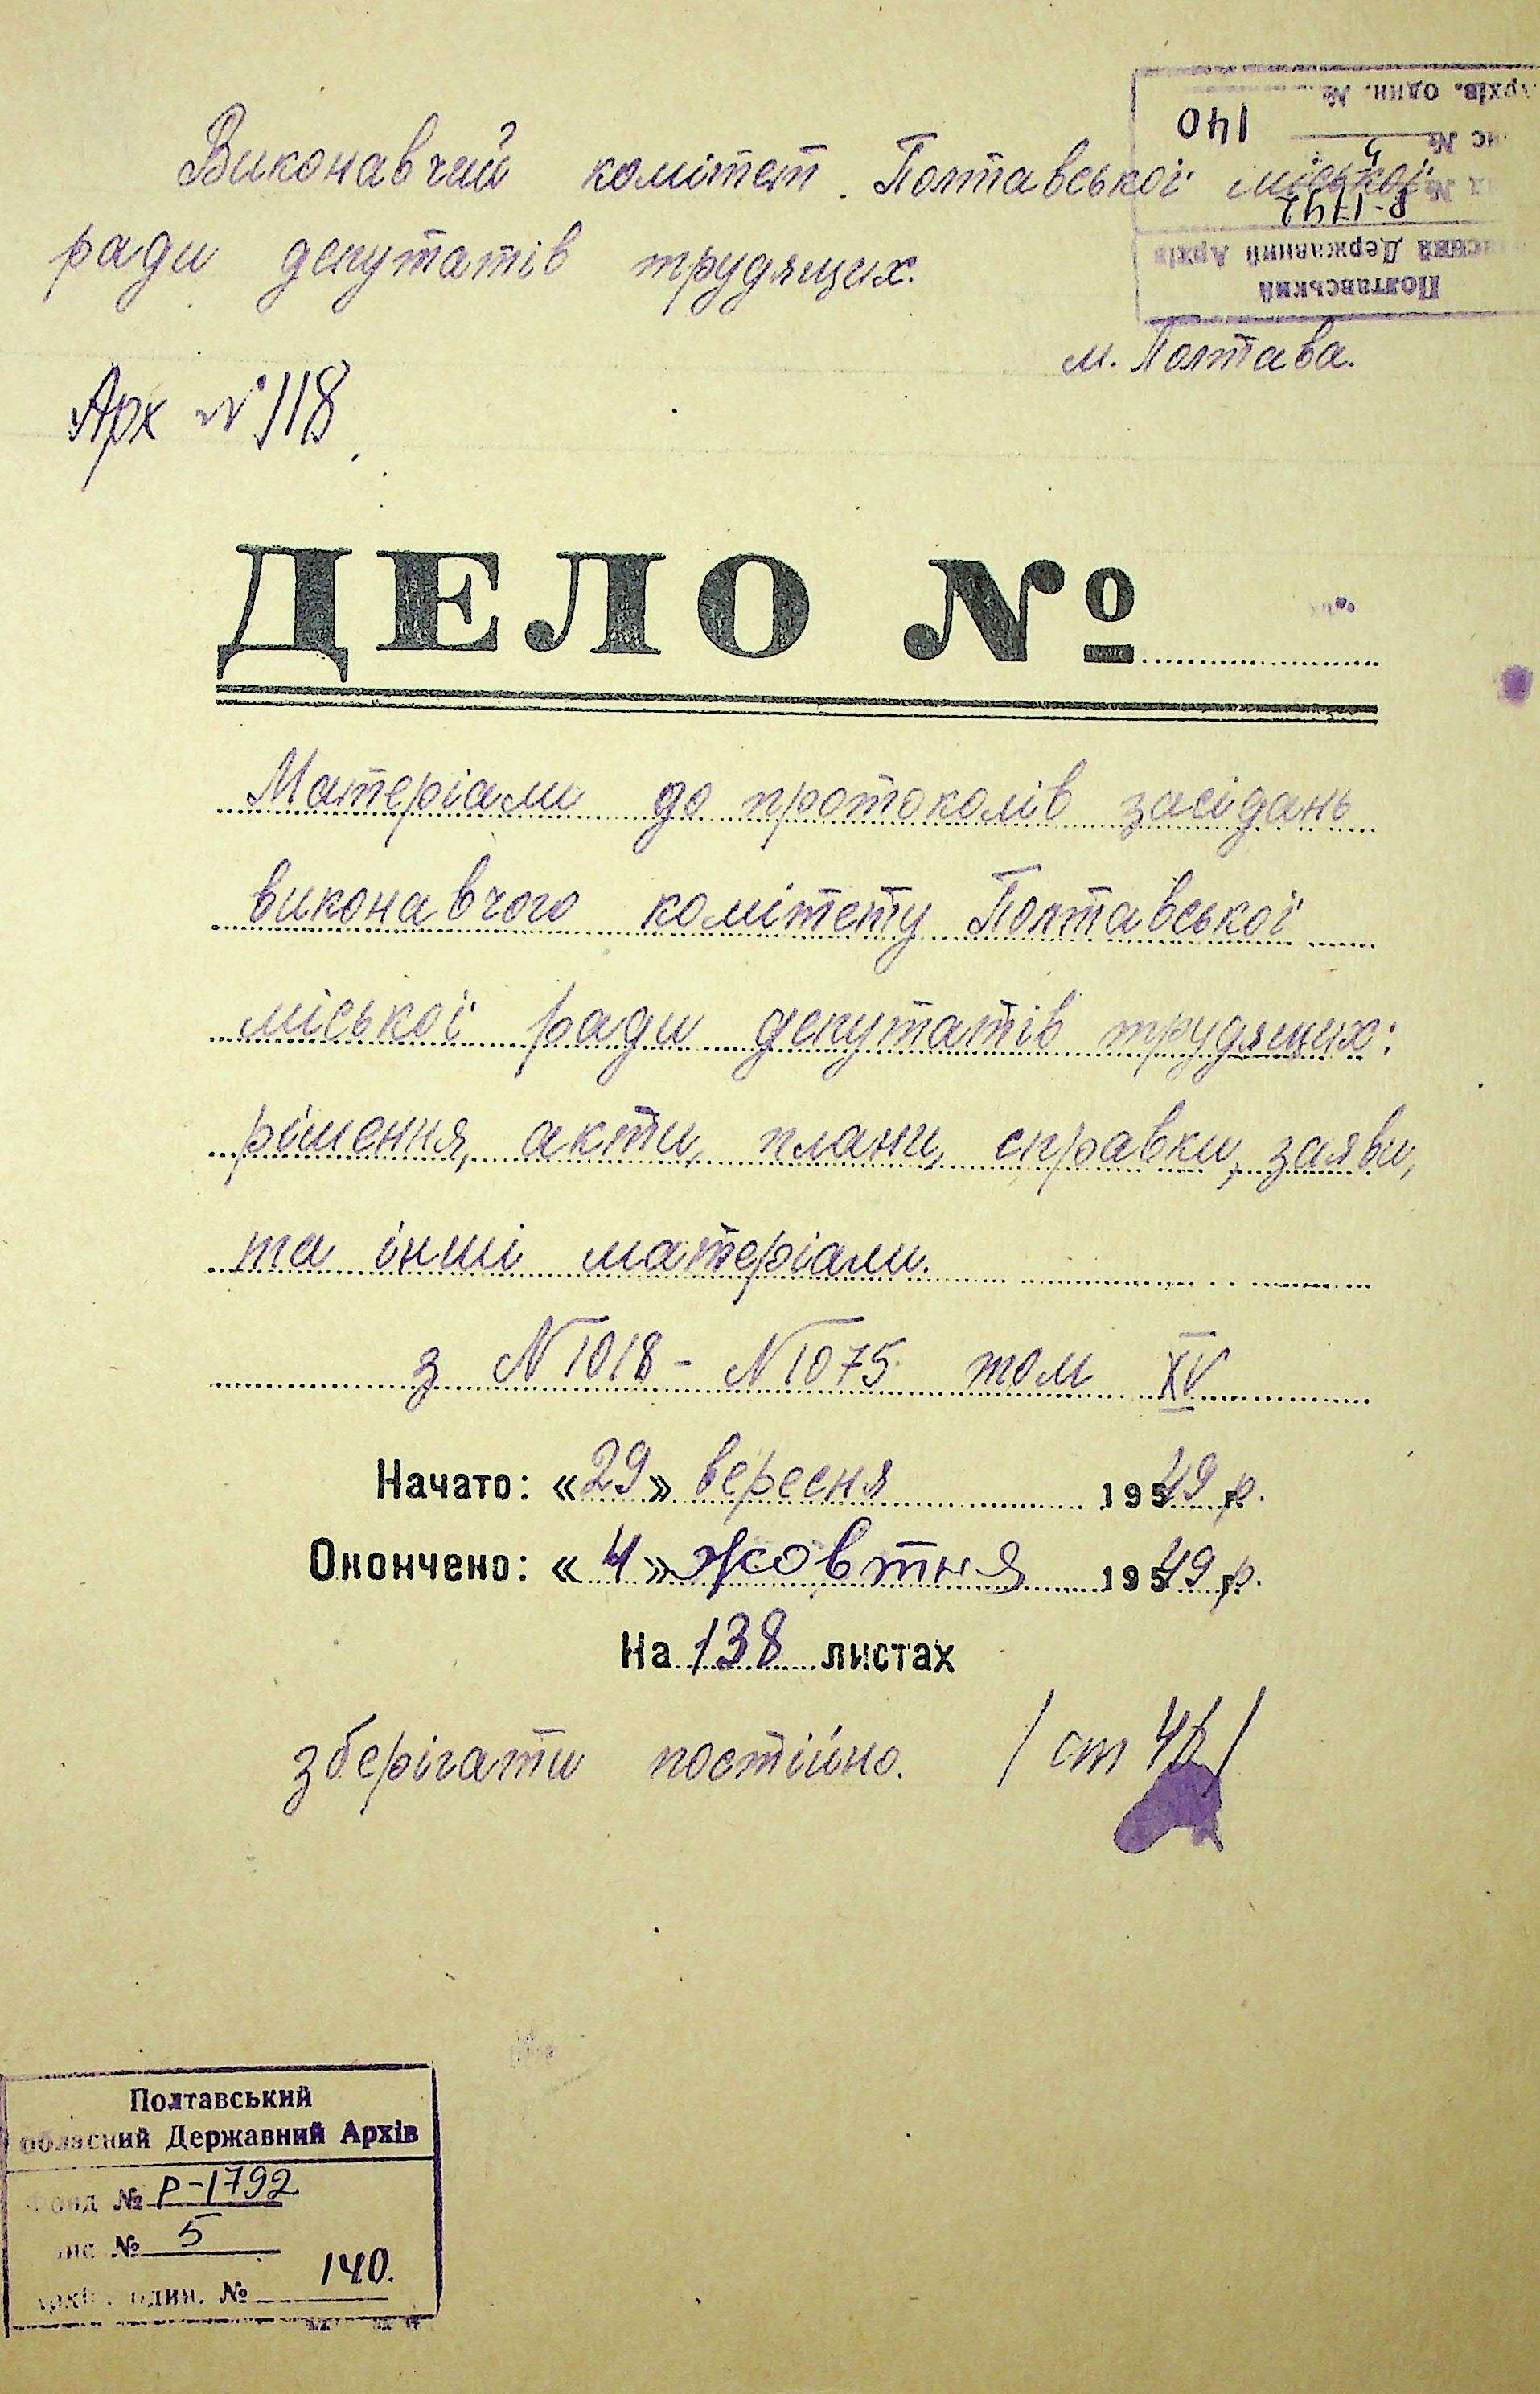 Виконавчий комітет Полтавської міської
ради депутатів трудящих.
м. Полтава.
Арх № 118
Архів. один. № 140
Р-1792
Державний Архів
Полтавський
ДЕЛО №
Матеріали до протоколів засідань
виконавчого комітету Полтавської
міської ради депутатів трудящих:
рішення, акти, плани, справки, заяви,
та інші матеріали.
з №1018 - №1075 том XV
Начато: «29» вересня 1949 р.
Окончено: «4» жовтня 1949 р.
На 138 листах
зберігати постійно. /ст
Полтавський
обласний Державний Архів
Фонд № Р-1792
опис № 5
архів. один. № 140.